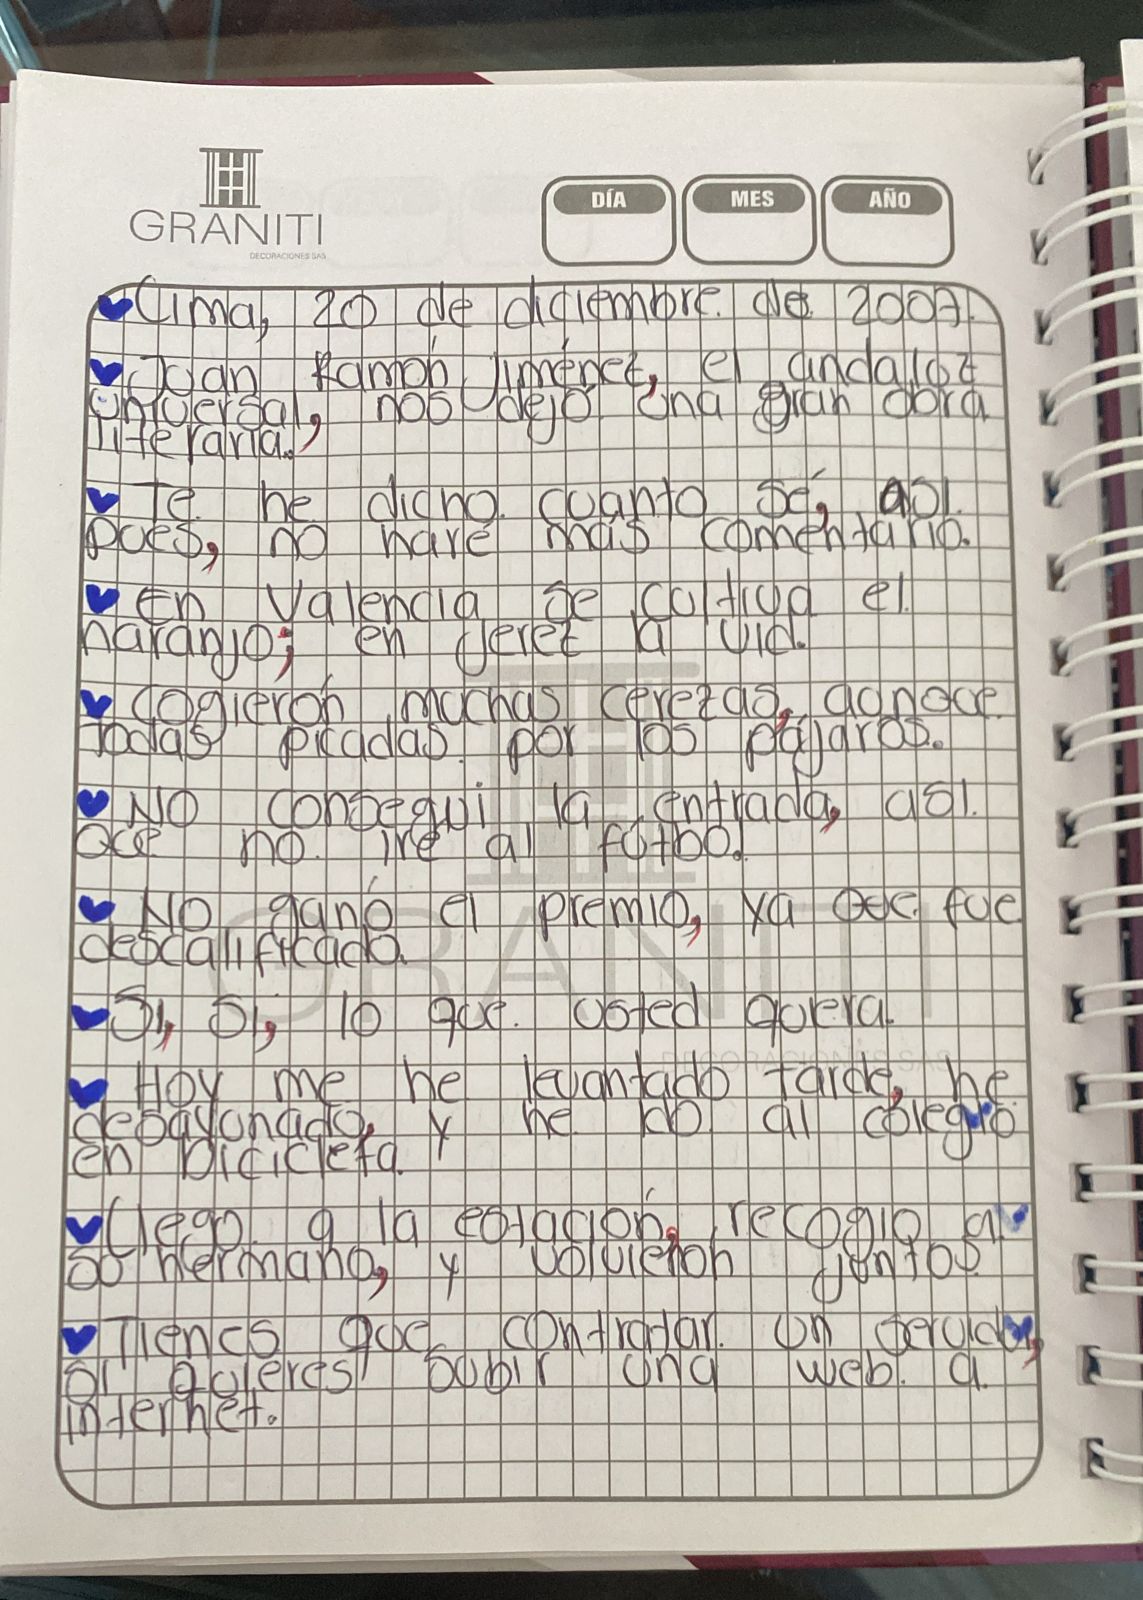 GRANITI
DECORACIONES SAS
DÍA MES AÑO
Lima, 20 de diciembre de 2007.
Juan Ramón Jiménez, el andaluz
universal, nos dejó una gran obra
literaria.,
Te he dicho cuanto sé, así
pues, no haré más comentario.
En Valencia se cultiva el
naranjo; en Jerez la vid.
Cogierón muchas cerezas, aunque
todas picadas por los pájaros.
No conseguí la entrada, así
que no iré al fútbol.
No ganó el premio, ya que fue
descalificado.
Si, si, lo que usted quiera.
Hoy me he levantado tarde, he
desayunado, y he ido al colegio
en bicicleta.
Llego a la estación, recogio a
su hermano, y volvieron juntos.
Tienes que contratar un
si quieres subir una web a
internet.
GRANITI